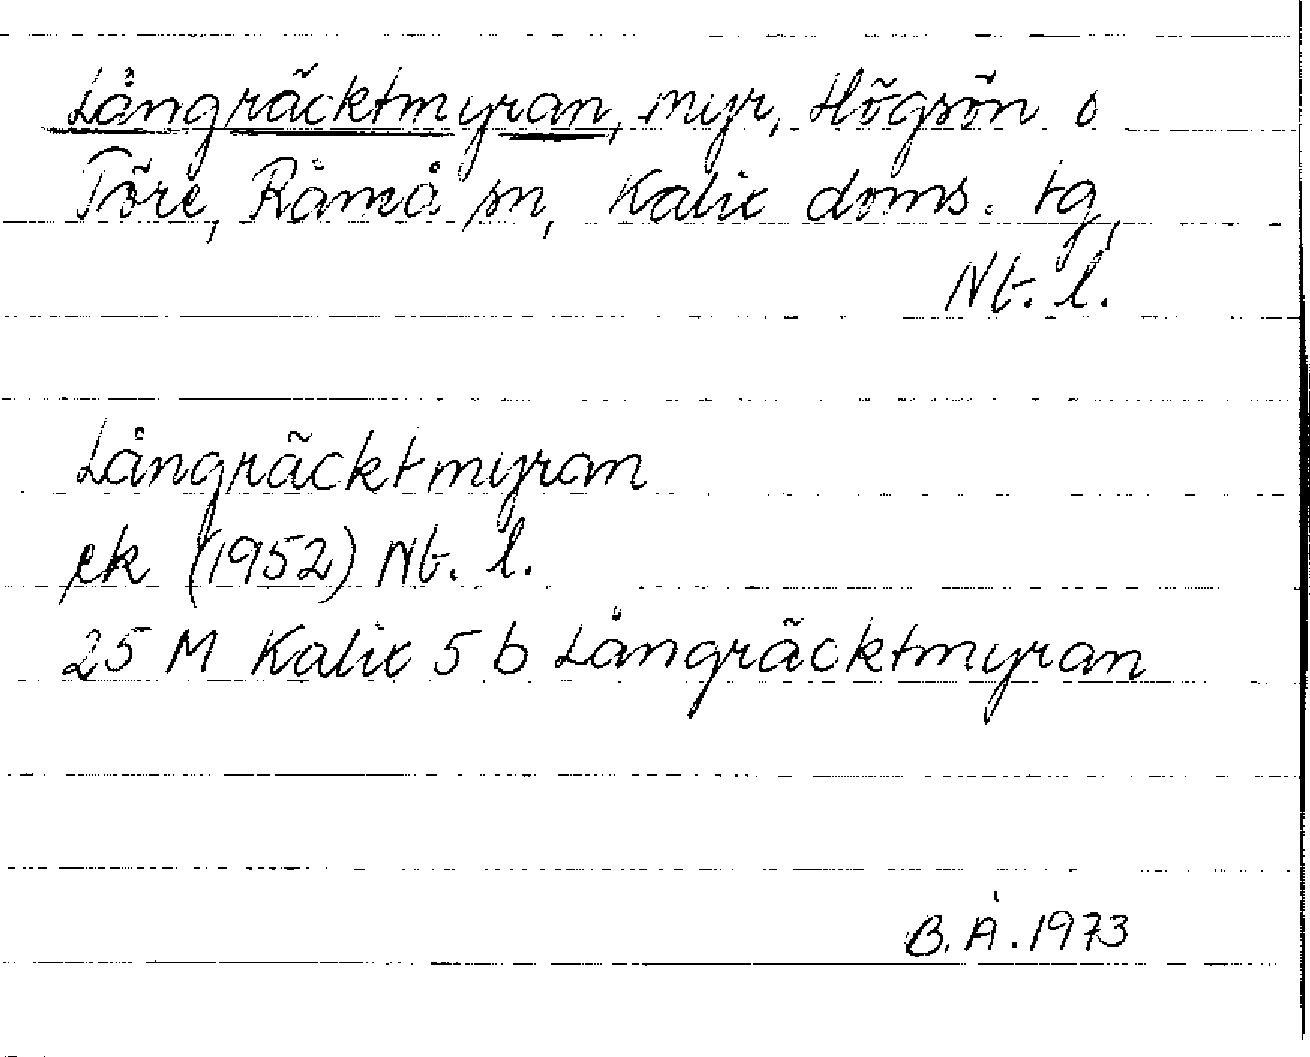 Långräcktmyran, myr, Högsön o
Töre, Råneå sn, Kalix doms. tg,
Nb. l.
Långräcktmyran
ek (1952) Nb. l.
25 M Kalix 5 b Långräcktmyran
B. Å. 1973